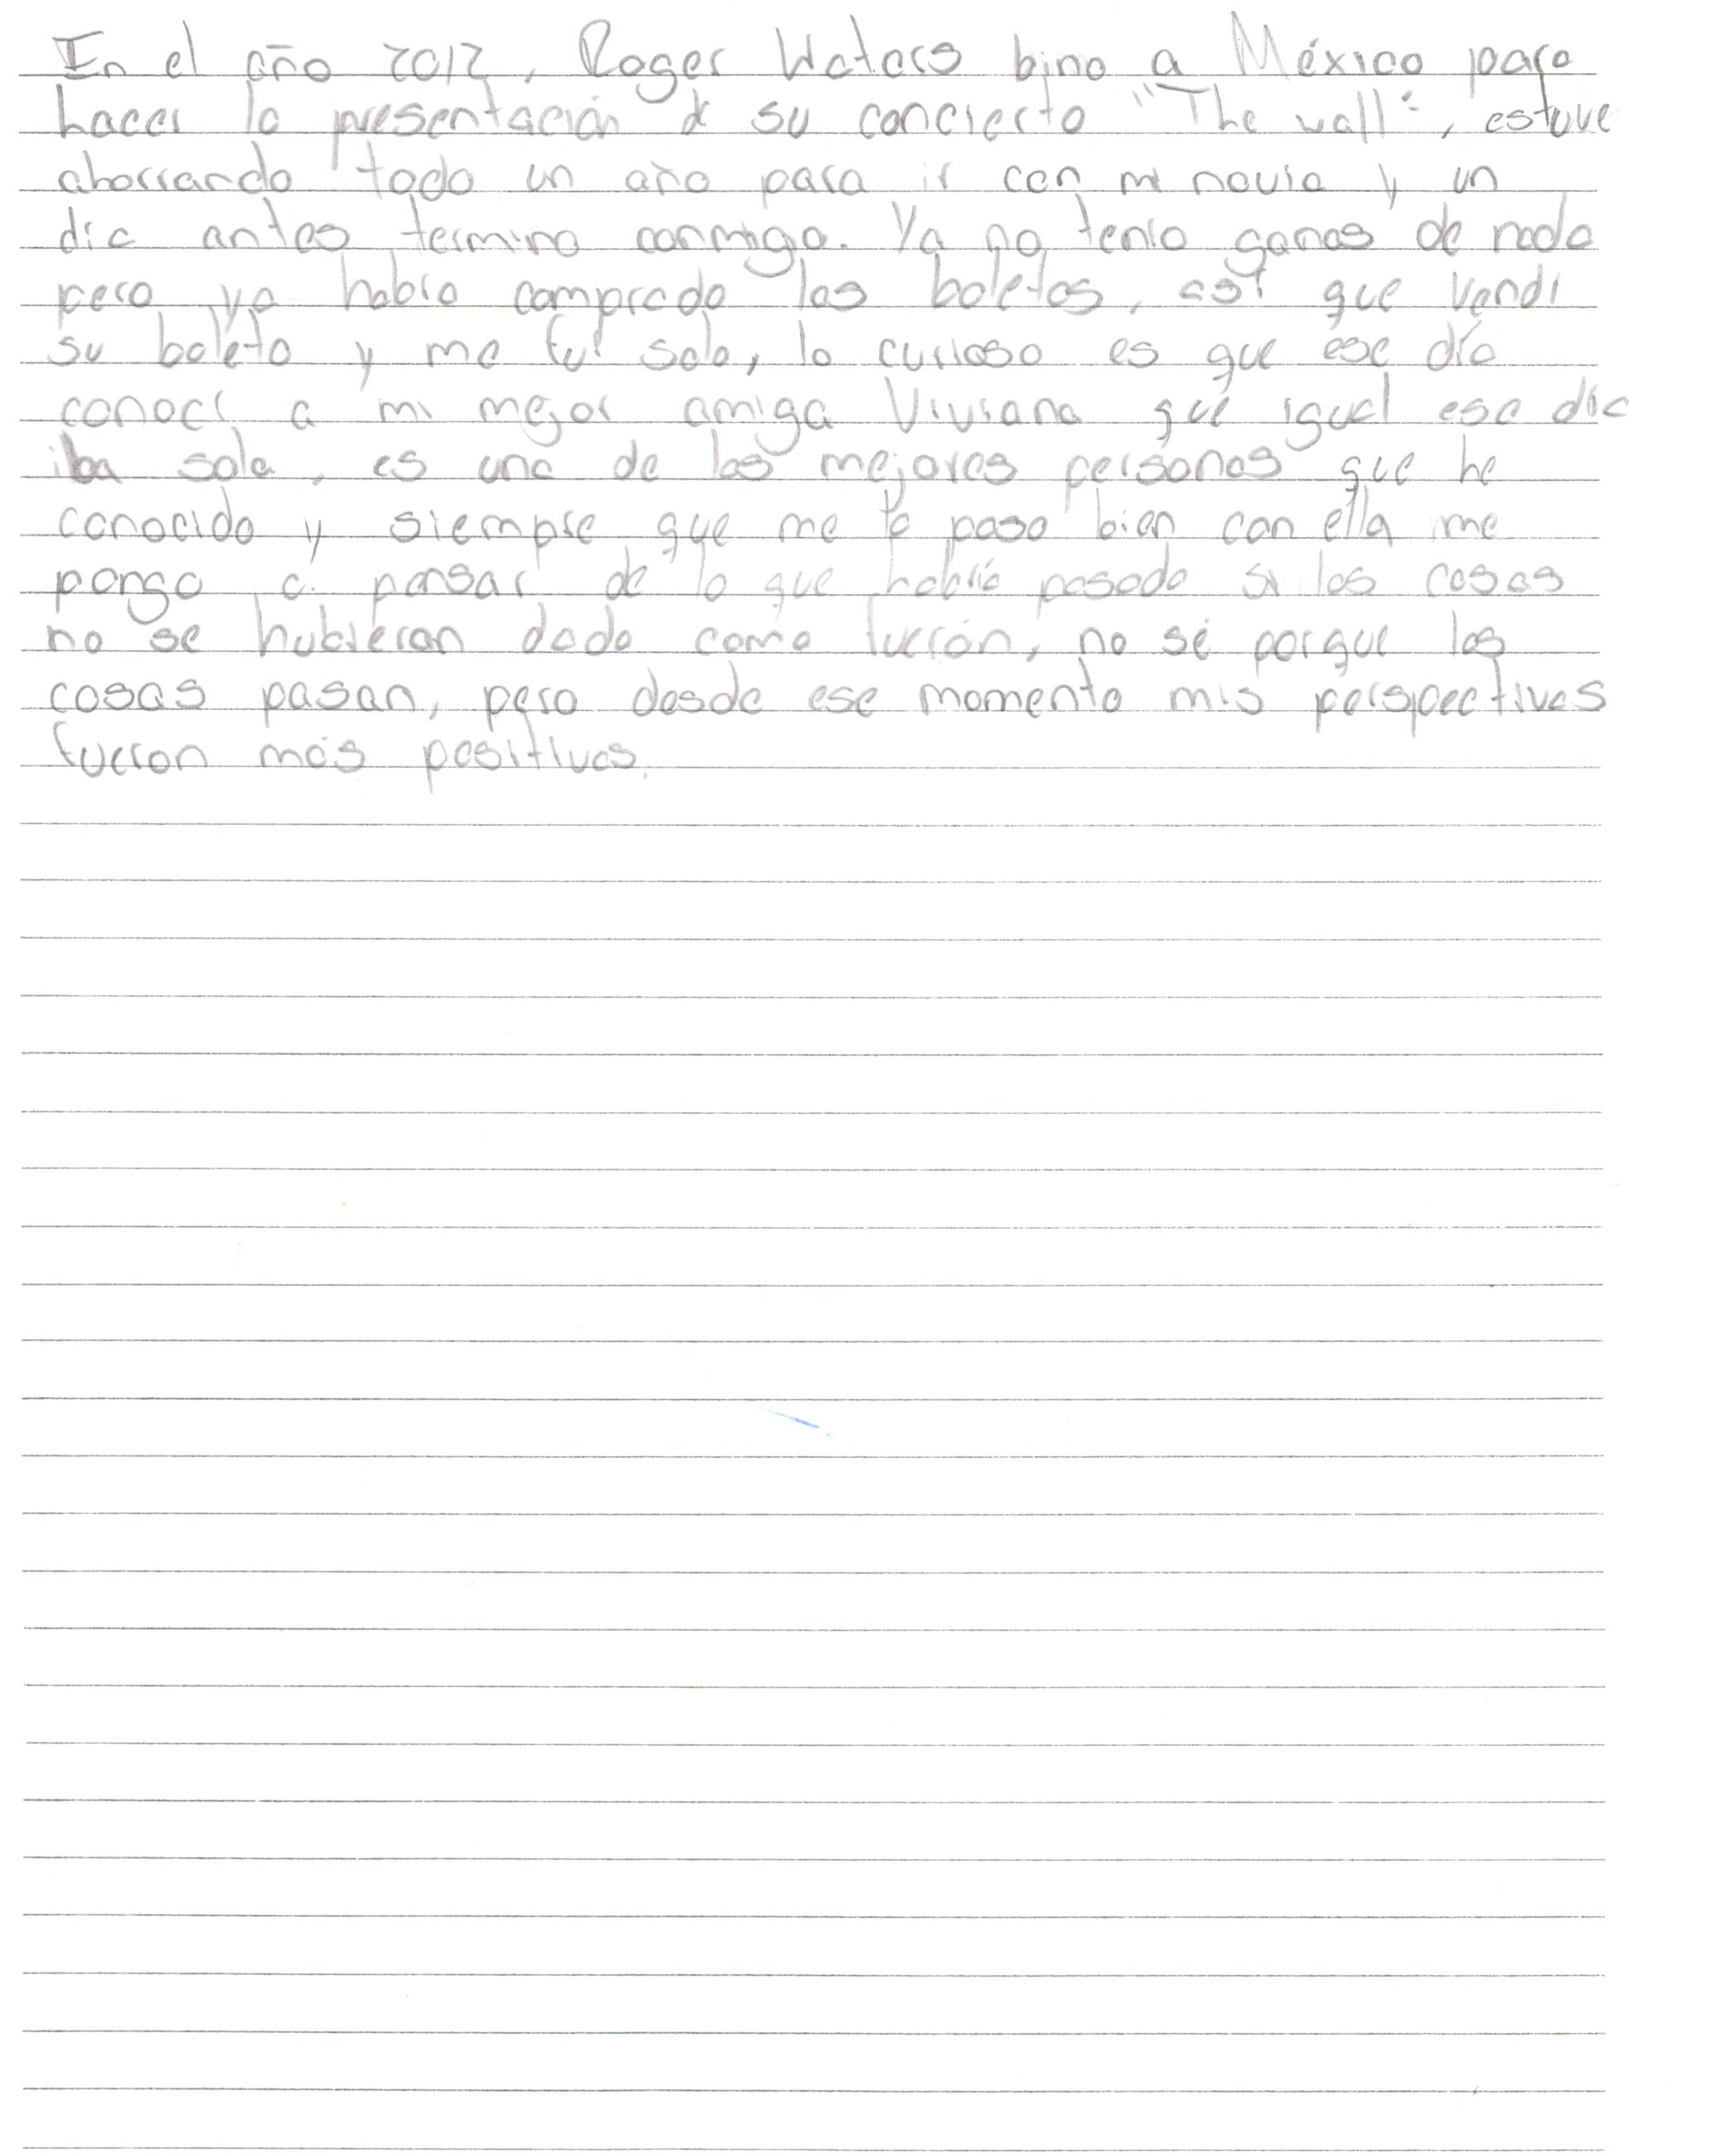 En el año 2012, Roger Waters bino a México para
hacer la presentación de su concierto "The wall", estuve
ahorrando todo un año para ir con mi novia y un
día antes termino conmigo. Ya no tenía ganas de nada
pero ya había comprado los boletos, así que vendí
su boleto y me fuí solo, lo curioso es que ese día
conocí a mi mejor amiga Viviana que igual ese día
iba sola, es una de las mejores personas que he
conocido y siempre que me la paso bien con ella me
pongo a pensar de lo que habría pasado si las cosas
no se hubieran dado como fueron, no sé porque las
cosas pasan, pero desde ese momento mis perspectivas
fueron más positivas.